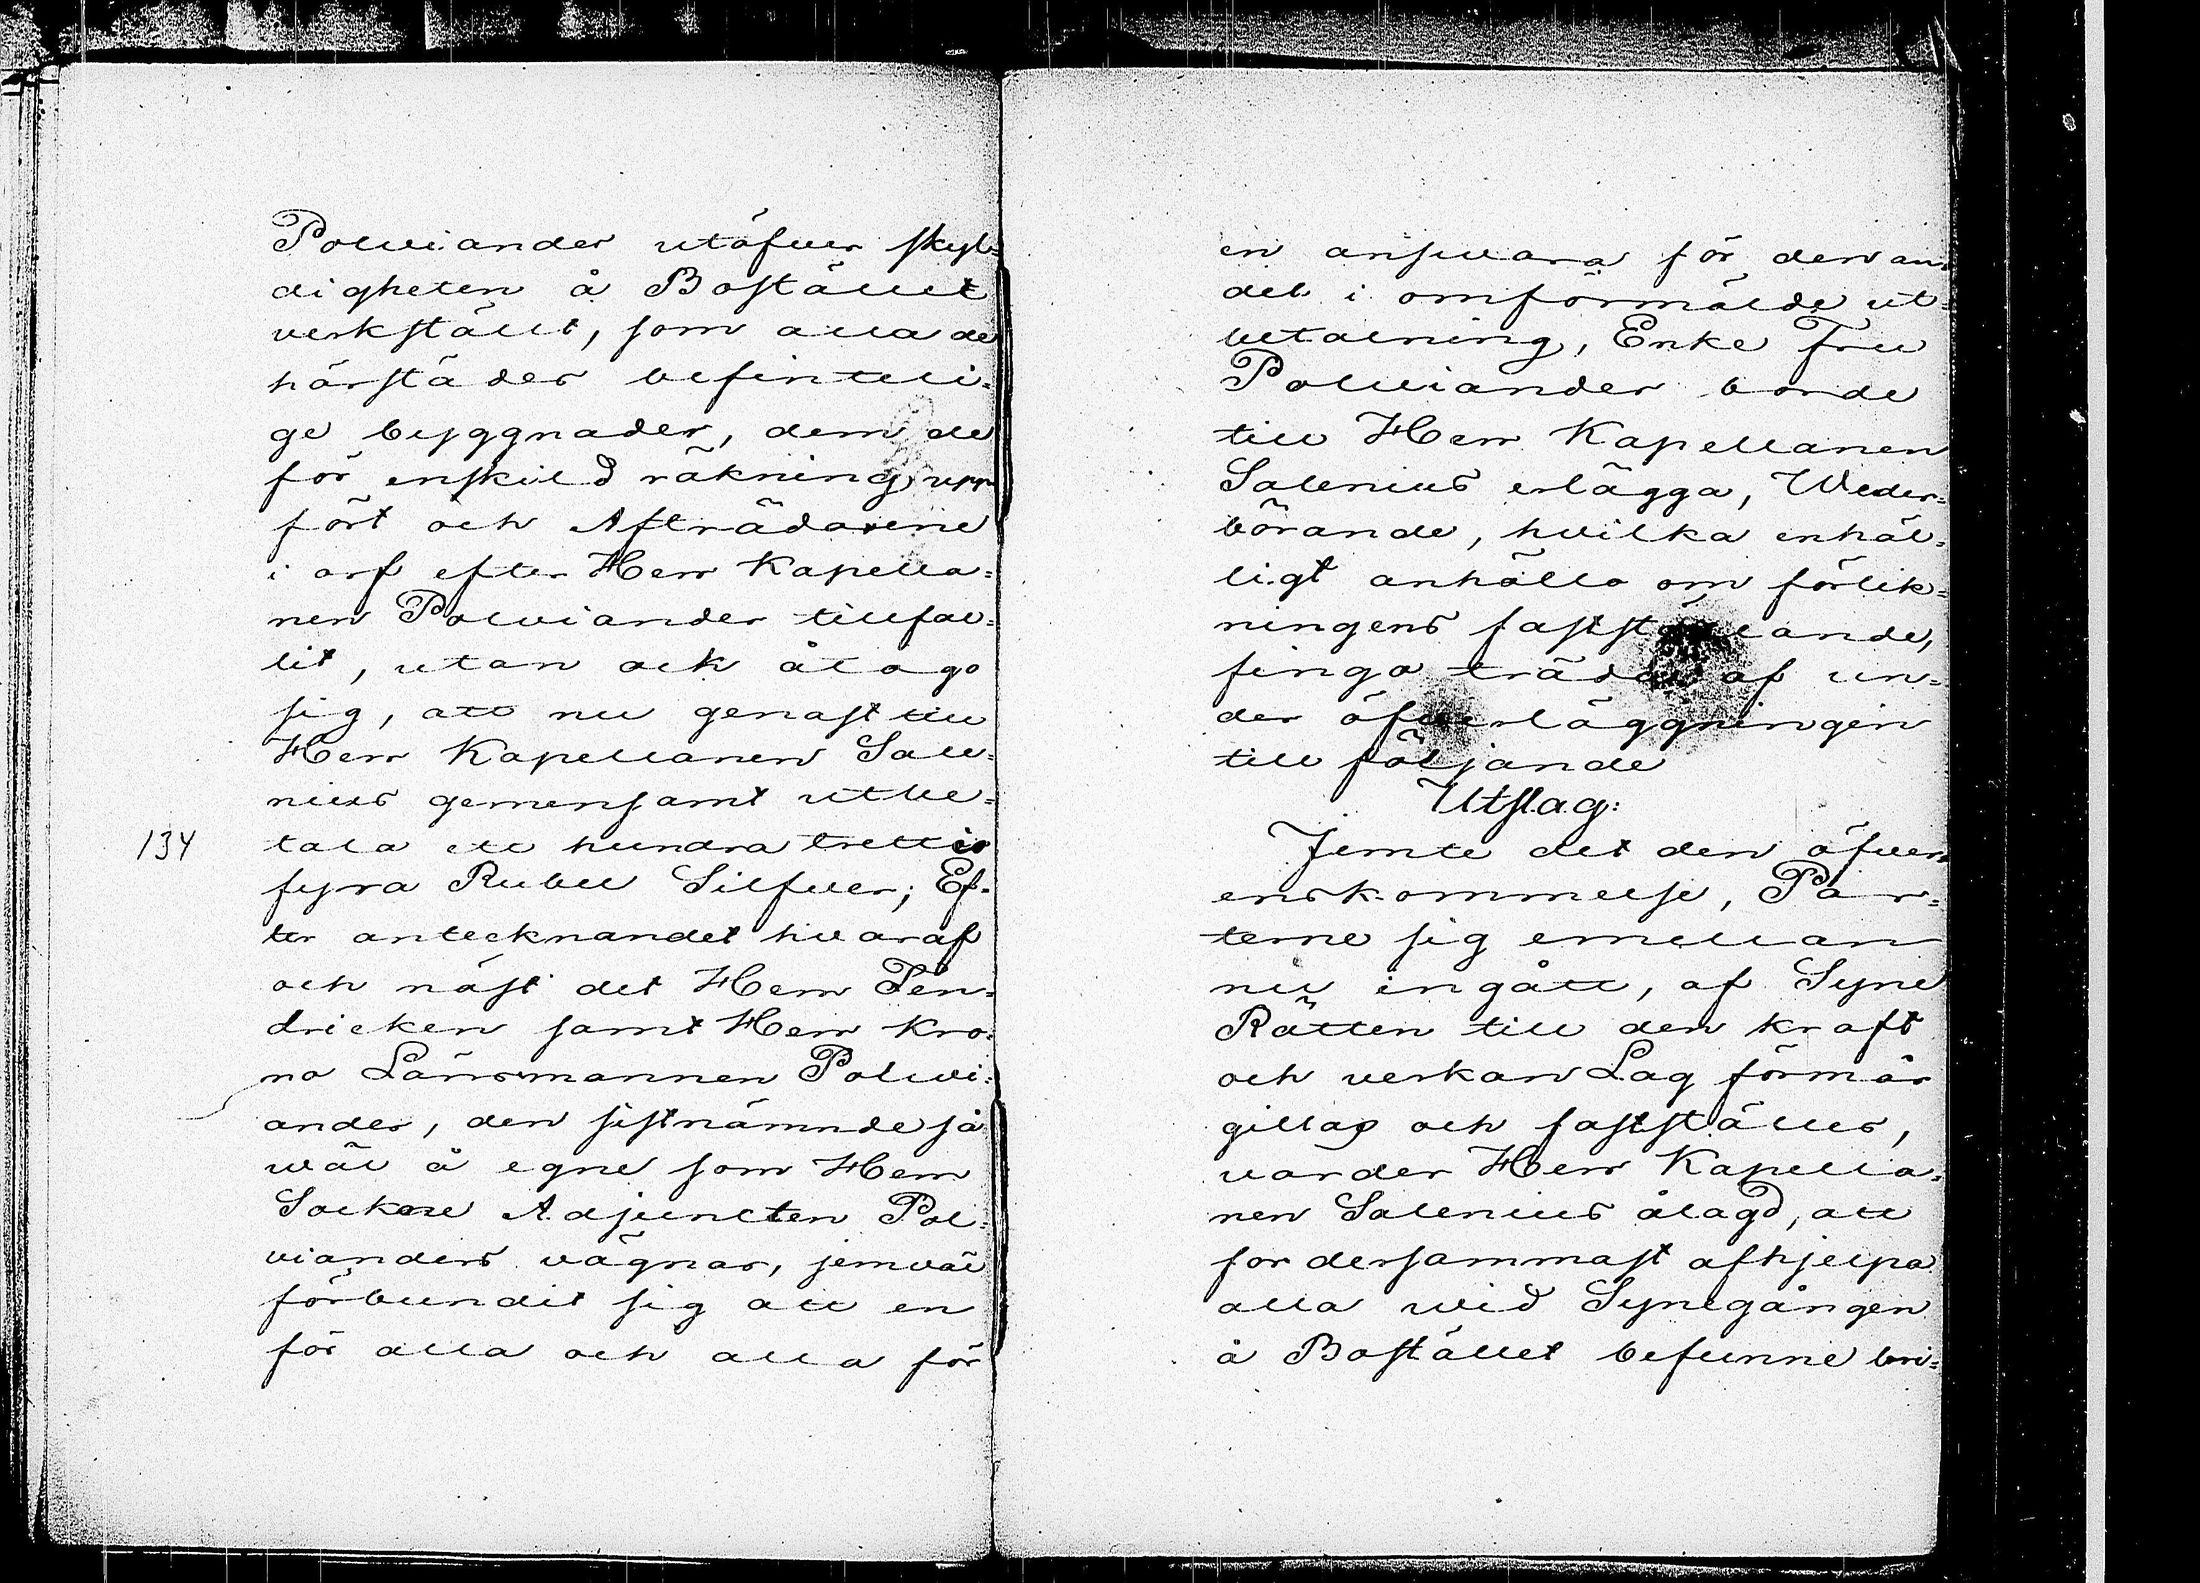 Polviander utöfver skyl-
digheten å Bostället
verkstält, som alla de
härstädes befintli-
ge byggnader, dem de
för enskild räkning upp
fört och Afträdarene
i arf efter Herr Kapella-
nen Polviander tillfal-
lit, utan ock åtogo
sig, att nu genast till
Herr Kapellanen Sale-
nius gemensamt utbe-
134 tala ett hundra trettio
fyra Rubel Silfver; Ef-
ter antecknandet hvaraf
och näst det Herr Fen-
dricken samt Herr Kro-
no Länsmannen Polvi-
ander, den sistnämnde så
wäl å egne som Herr
Sockne Adjuncten Pol-
vianders vägnar, jemväl
förbundit sig att en
för alla och alla för
en answara för den an-
del i omförmälde ut-
betalning, Enke Fru
Polviander borde
till Herr Kapellanen
Salenius erlägga, Weder-
börande, hvilka enhäl-
ligt anhöllo om förlik-
ningens fastställande,
fingo träda af un-
der öfverläggningen
till följande
Utslag:
Jemte det den öfver-
enskommelse, Par-
terne sig emellan
nu ingått, af Syne
Rätten till den kraft
och verkan Lag förmår
gillas och fastställes,
varder Herr Kapella-
nen Salenius ålagd, att
fordersammast afhjelpa
alla wid Synegången
å Bostället befunne bri-